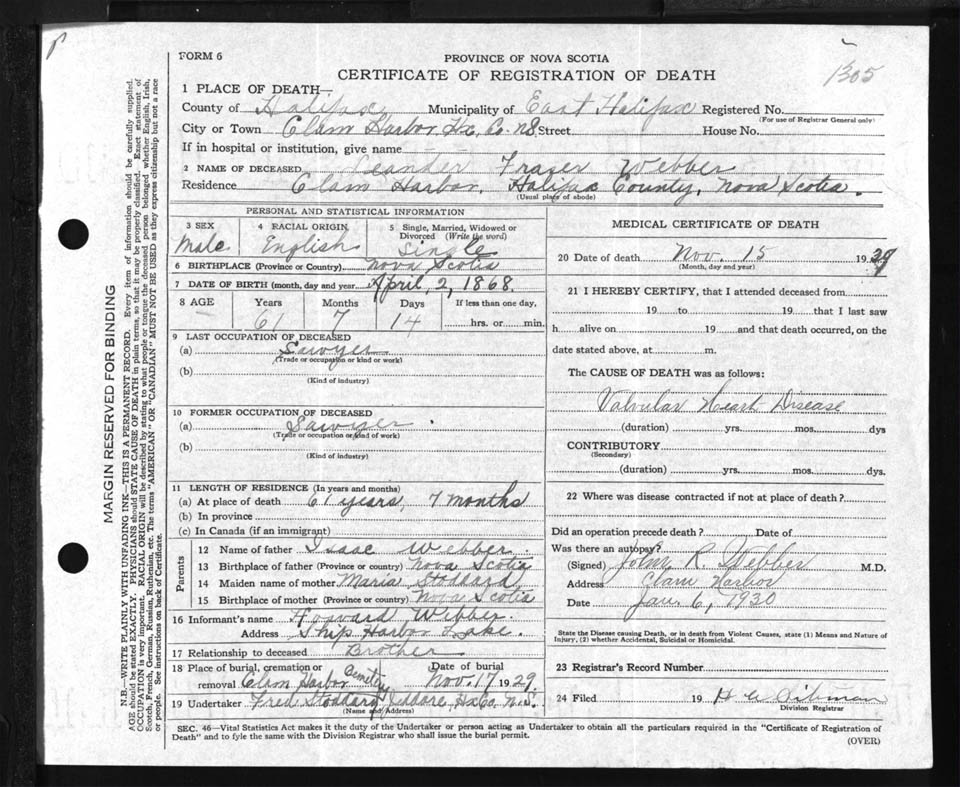 FORM 6
PROVINCE OF NOVA SCOTIA
CERTIFICATE OF REGISTRATION OF DEATH
1305
1 PLACE OF DEATH—
County of Halifax Municipality of East Halifax Registered No.
(For use of Registrar General only)
City or Town Clam Harbor, Hx. Co. N.S. Street House No.
If in hospital or institution, give name
2 NAME OF DECEASED Leander Frazer Webber
Residence Clam Harbor, Halifax County, Nova Scotia.
(Usual place of abode)
PERSONAL AND STATISTICAL INFORMATION
3 SEX 4 RACIAL ORIGIN 5 Single, Married, Widowed or Divorced (Write the word)
Male English Single
6 BIRTHPLACE (Province or Country) Nova Scotia
7 DATE OF BIRTH (month, day and year) April, 2, 1868.
8 AGE Years Months Days If less than one day,
61 7 14 hrs. or min.
9 LAST OCCUPATION OF DECEASED
(a) Sawyer
(Trade or occupation or kind or work)
(b)
(Kind of industry)
10 FORMER OCCUPATION OF DECEASED
(a) Sawyer.
(Trade or occupation or kind of work)
(b)
(Kind of industry)
11 LENGTH OF RESIDENCE (In years and months)
(a) At place of death 61 years, 7 months
(b) In province
(c) In Canada (if an immigrant)
Parents
12 Name of father Isaac Webber.
13 Birthplace of father (Province or country) Nova Scotia
14 Maiden name of mother Maria Stoddard
15 Birthplace of mother (Province or country) Nova Scotia
16 Informant's name Howard Webber
Address Ship Harbor Lake.
17 Relationship to deceased Brother
18 Place of burial, cremation or removal Clam Harbor Cemetery Date of burial Nov. 17 1929.
19 Undertaker Fred Stoddard, Jeddore, Hx Co. N.S.
(Name and Address)
MEDICAL CERTIFICATE OF DEATH
20 Date of death Nov. 15 1929
(Month, day and year)
21 I HEREBY CERTIFY, that I attended deceased from
19 to 19 that I last saw
h alive on 19 and that death occurred, on the
date stated above, at m.
The CAUSE OF DEATH was as follows:
Valvular Heart Disease
(duration) yrs. mos. dys
CONTRIBUTORY
(Secondary)
(duration) yrs. mos. dys.
22 Where was disease contracted if not at place of death?
Did an operation precede death? Date of
Was there an autopsy?
(Signed) John R. Webber M.D.
Address Clam Harbor
Date Jan. 6, 1930
State the Disease causing Death, or in death from Violent Causes, state (1) Means and Nature of
Injury, (2) whether Accidental, Suicidal or Homicidal.
23 Registrar's Record Number
24 Filed 19 H
Division Registrar
SEC. 46—Vital Statistics Act makes it the duty of the Undertaker or person acting as Undertaker to obtain all the particulars required in the "Certificate of Registration of
Death" and to fyle the same with the Division Registrar who shall issue the burial permit.
(OVER)
MARGIN RESERVED FOR BINDING
N.B.—WRITE PLAINLY WITH UNFADING INK—THIS IS A PERMANENT RECORD. Every item of information should be carefully supplied.
AGE should be stated EXACTLY. PHYSICIANS should STATE CAUSE OF DEATH in plain terms, so that it may be properly classified. Exact statement of
OCCUPATION is very important. RACIAL ORIGIN will be described by stating to what people or tongue the deceased person belonged whether English, Irish,
Scotch, French, German, Russian, Ruthenian, etc. The terms "AMERICAN" OR "CANADIAN" MUST NOT BE USED as they express citizenship but not a race
or people. See instructions on back of Certificate.